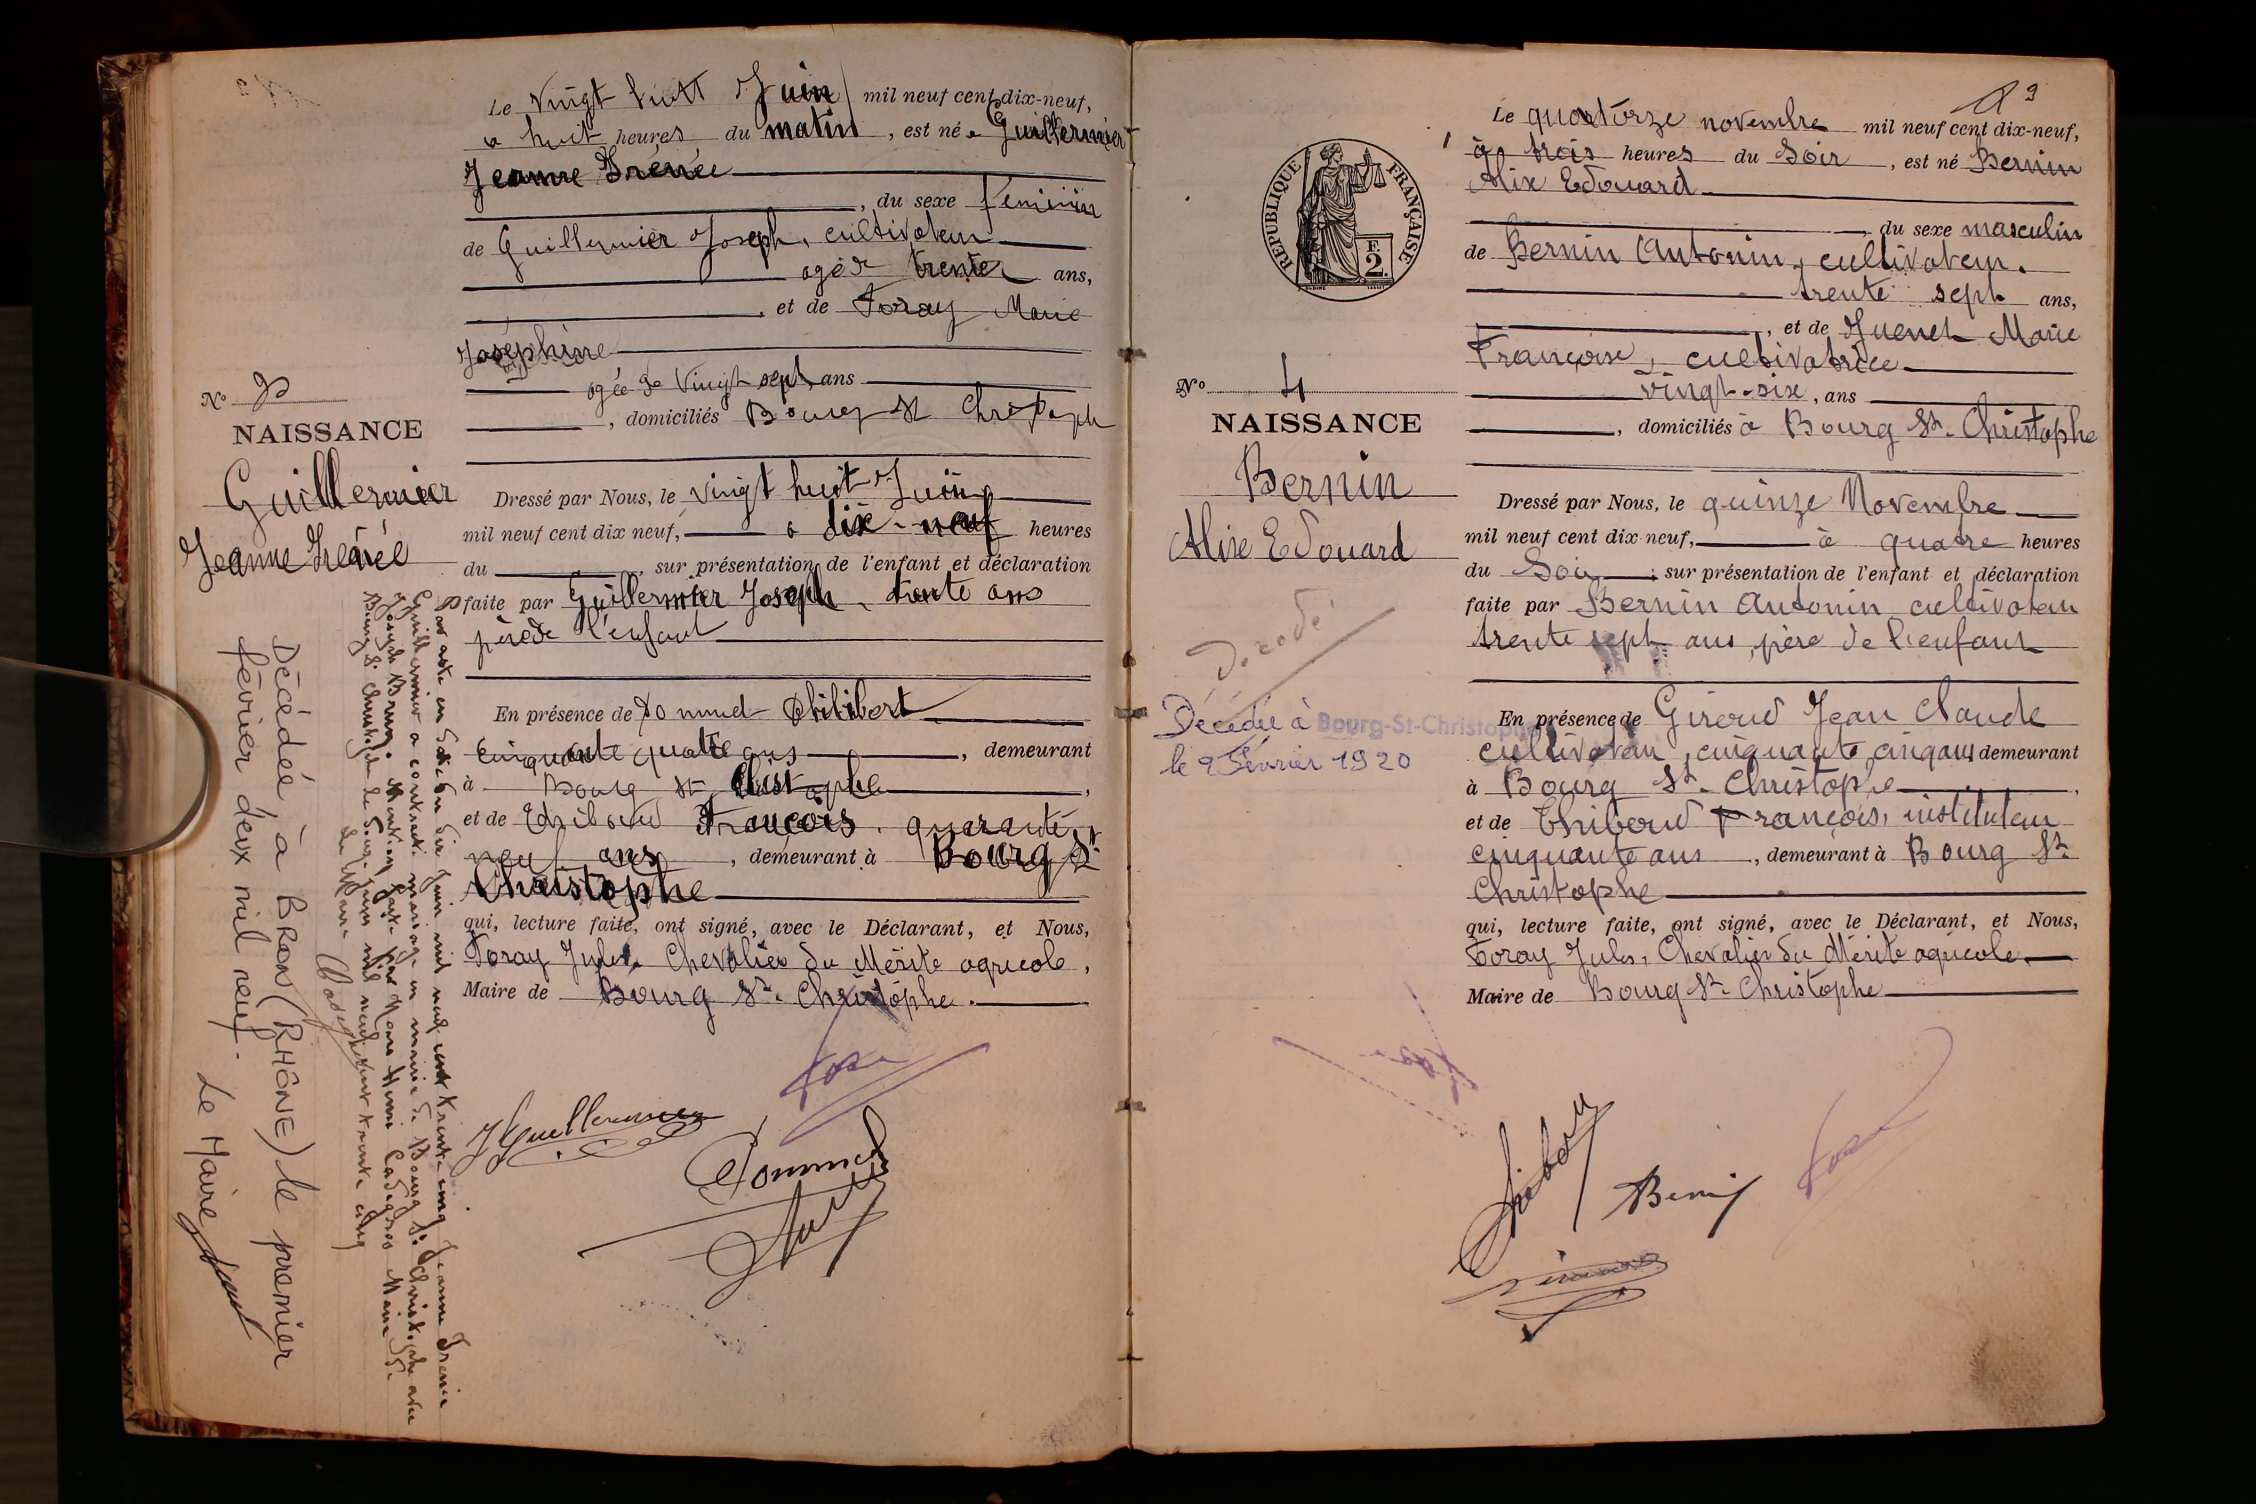 Le vingt huit Juin mil neuf cent dix-neuf,
a huit heures du matin, est née Guillermier
Jeanne Irénée
, du sexe féminin
de Guillermier Joseph, cultivateur
agé de trente ans,
, et de Foray Marie
Joséphine
agée de vingt sept ans
, domiciliés Bourg St Christophe
No
NAISSANCE
Guillermier
Jeanne Irénée
Dressé par Nous, le vingt huit Juin
mil neuf cent dix neuf, a dix-neuf heures
du , sur présentation de l'enfant et déclaration
faite par Guillermier Joseph, trente ans
père de l'enfant
En présence de Pommel Philibert
cinquante quatre ans , demeurant
à Bourg St Christophe ,
et de Thiboud François, quarante
neuf ans , demeurant à Bourg St
Christophe
qui, lecture faite, ont signé, avec le Déclarant, et Nous,
Foray Jules Chevalier du Mérite agricole,
Maire de Bourg St. Christophe.
Foray
J Guillermier
Pommel
Par acte en date du six juin mil neuf cent trente cinq Jeanne Irénée
Guillermier a contracté mariage en mairie de Bourg St Christophe avec
Joseph Mention faite par Nous Maire de
Bourg St Christophe le juin mil neuf cent trente cinq
Le Maire
Décédée à BRON (RHÔNE) le premier
février deux mil neuf.
Le Maire
9
REPUBLIQUE FRANÇAISE
F.
2.
Le quatorze novembre mil neuf cent dix-neuf,
à trois heures du Soir, est né Bernin
Alix Edouard
, du sexe masculin
de Bernin Antonin, cultivateur.
trente sept ans,
, et de Juenet Marie
Françoise, cultivatrice
vingt-six, ans
, domiciliés à Bourg St. Christophe
No 4
NAISSANCE
Bernin
Alix Edouard
Décédé à Bourg-St-Christophe
le 2 Février 1920
Dressé par Nous, le quinze Novembre
mil neuf cent dix-neuf, à quatre heures
du Soir, sur présentation de l'enfant et déclaration
faite par Bernin Antonin cultivateur
trente sept ans, père de l'enfant
En présence de Giroud Jean Claude
cultivateur, cinquante cinq ans demeurant
à Bourg St. Christophe ,
et de Thiboud François, instituteur
cinquante ans , demeurant à Bourg St.
Christophe
qui, lecture faite, ont signé, avec le Déclarant, et Nous,
Foray Jules, Chevalier du Mérite agricole
Maire de Bourg St Christophe
Thiboud
Bernin
Foray